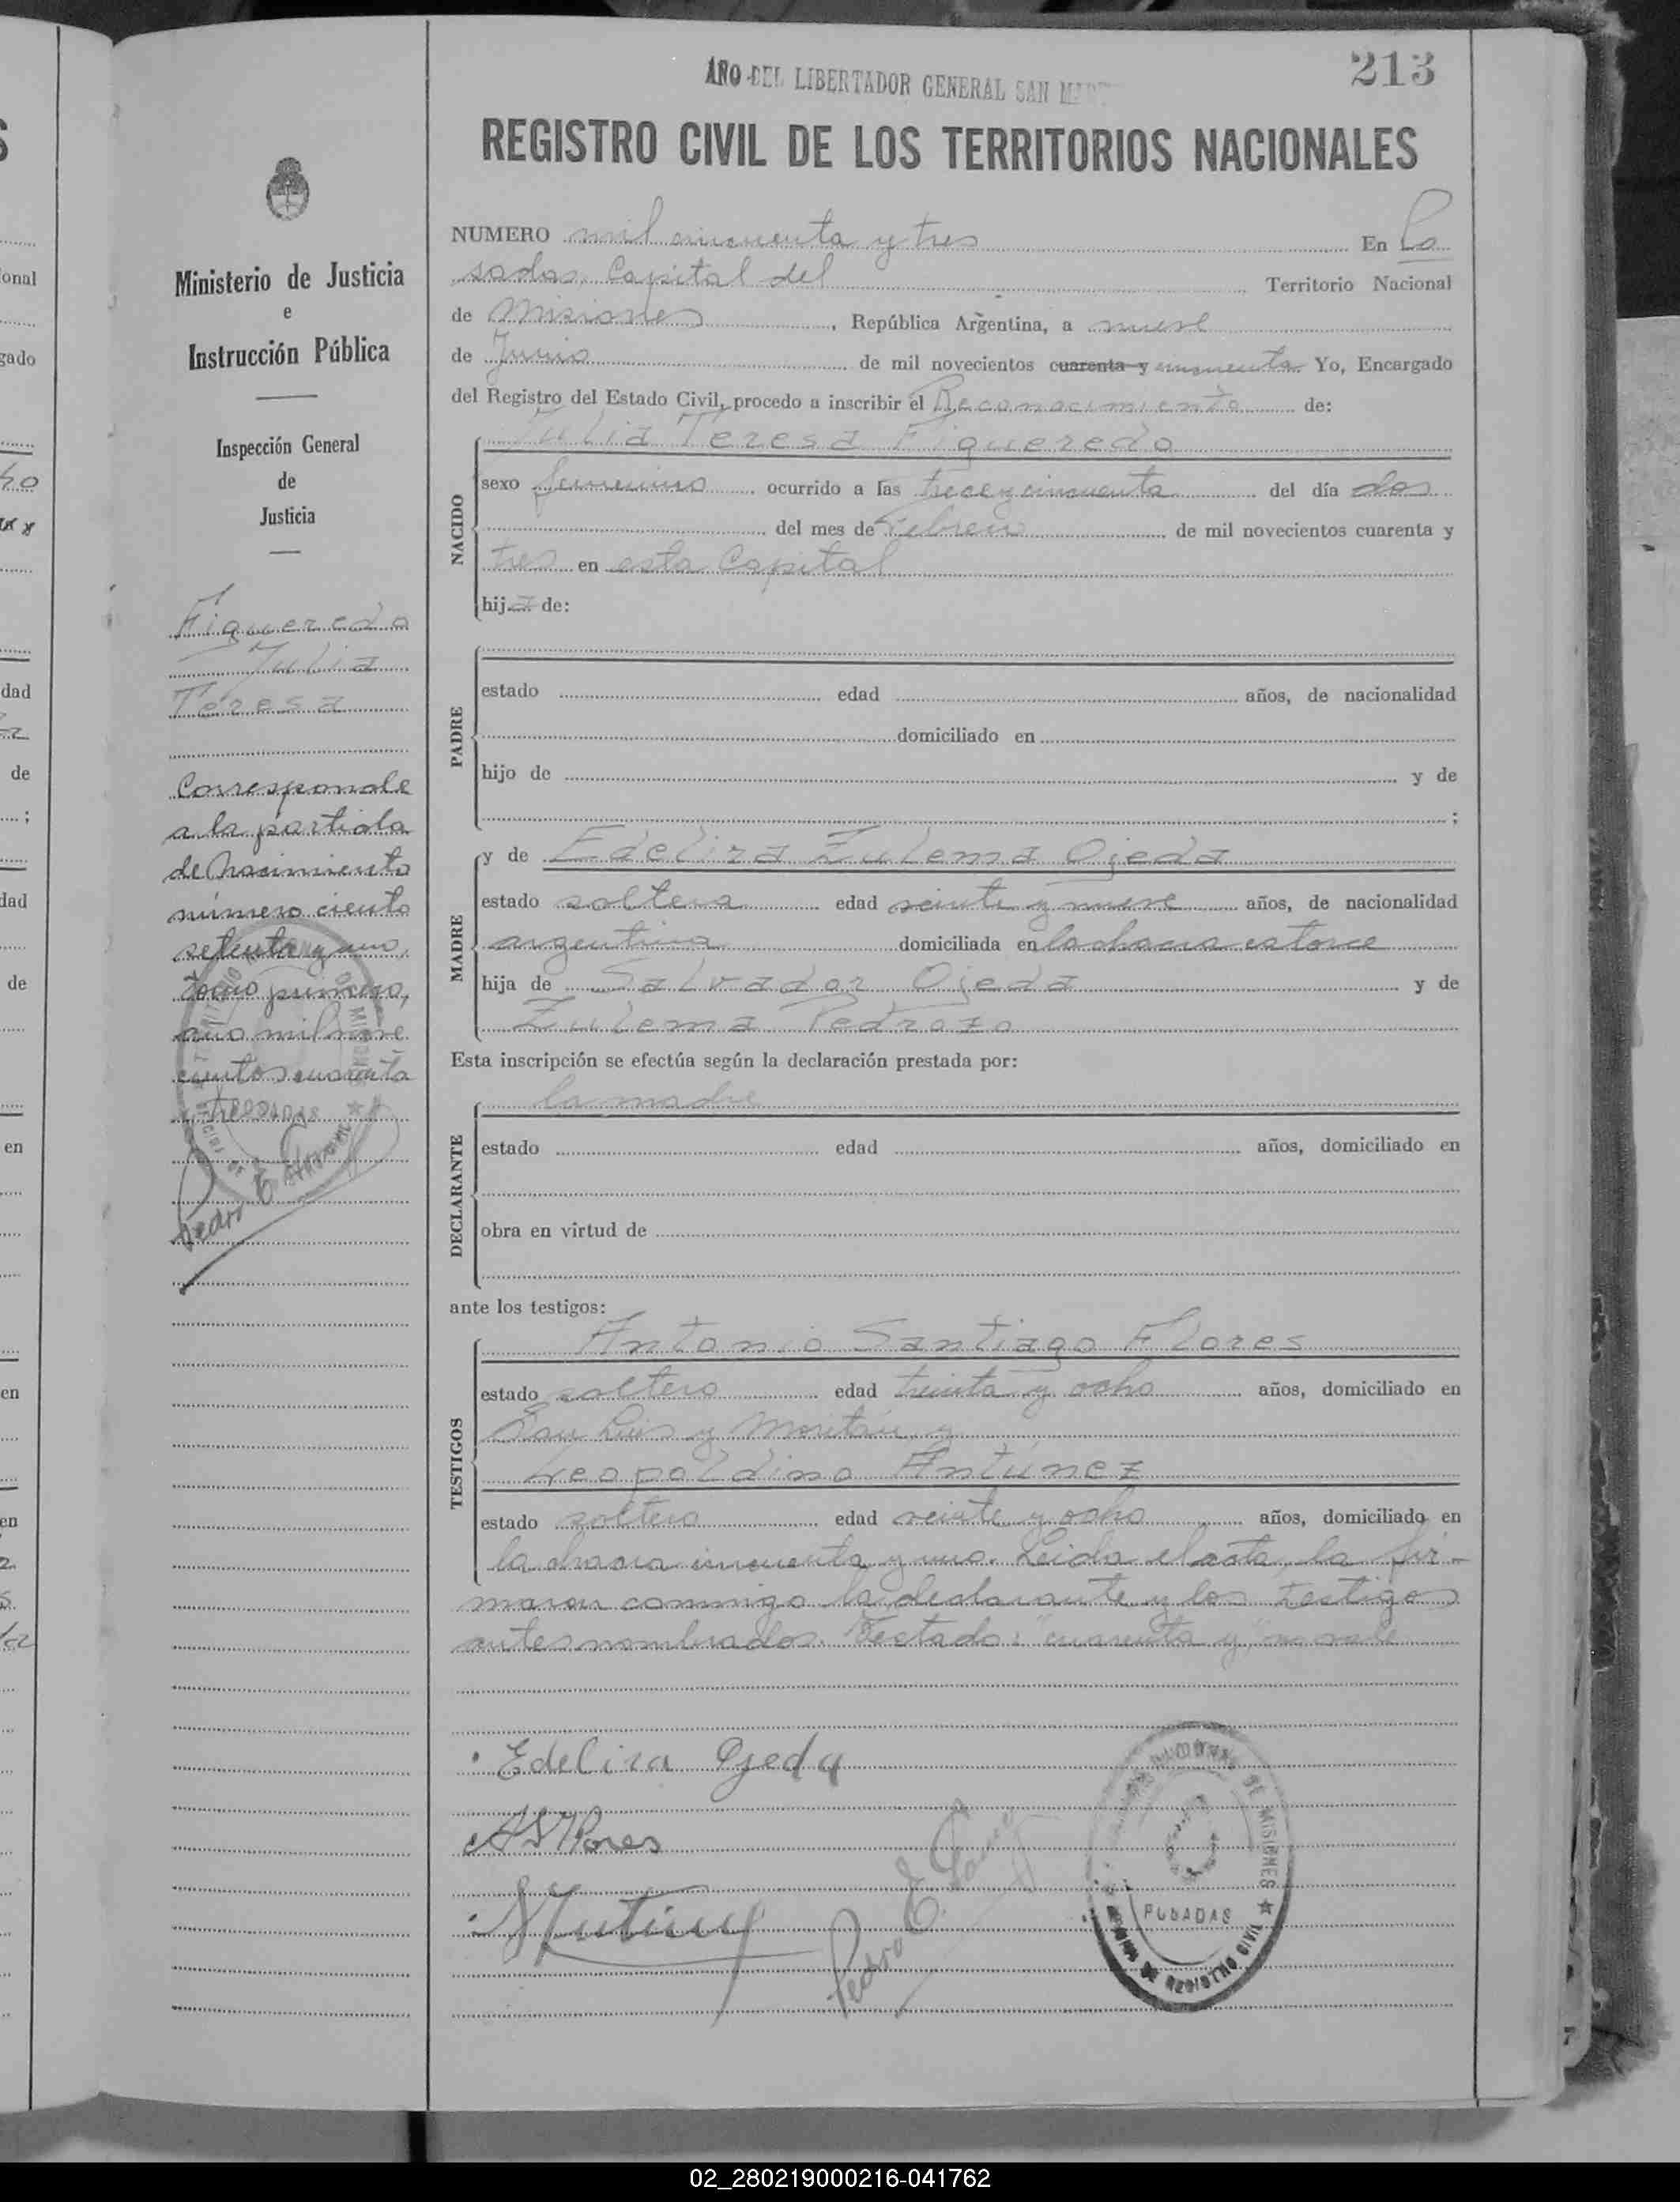 213
AÑO DEL LIBERTADOR GENERAL SAN
REGISTRO CIVIL DE LOS TERRITORIOS NACIONALES
Ministerio de Justicia
e
Instrucción Pública
Inspección General
de
Justicia
Figueredo
Julia
Teresa
Corresponde
a la partida
de Nacimiento
número ciento
setenta y uno,
Tomo primero,
año mil nove
cientos cuarenta
y tres
NUMERO mil cincuenta y tres En Po
sadas, Capital del Territorio Nacional
de Misiones, República Argentina, a nueve
de Junio de mil novecientos cuarenta y cincuenta Yo, Encargado
del Registro del Estado Civil, procedo a inscribir el Reconocimiento de:
NACIDO
Julia Teresa Figueredo
sexo femenino ocurrido a las trece y cincuenta del día dos
del mes de Febrero de mil novecientos cuarenta y
tres en esta Capital
hija de:
PADRE
estado edad años, de nacionalidad
domiciliado en
hijo de y de
;
MADRE
y de Edelira Zulema Ojeda
estado soltera edad veinte y nueve años, de nacionalidad
argentina domiciliada en la chacra catorce
hija de Salvador Ojeda y de
Zulema Pedrozo
Esta inscripción se efectúa según la declaración prestada por:
DECLARANTE
la madre
estado edad años, domiciliado en
obra en virtud de
ante los testigos:
TESTIGOS
Antonio Santiago Flores
estado soltero edad treinta y ocho años, domiciliado en
San Luis y Moritán y
Leopoldino Antúnez
estado soltero edad veinte y ocho años, domiciliado en
la chacra cincuenta y uno. Leida el acta, la fir-
maron conmigo la declarante y los testigos
antes nombrados. Testado: "cuarenta y" no vale
Edelira Ojeda
A S Flores
Pedro E.
POSADAS
MISIONES
REGISTRO CIVIL
02_280219000216-041762